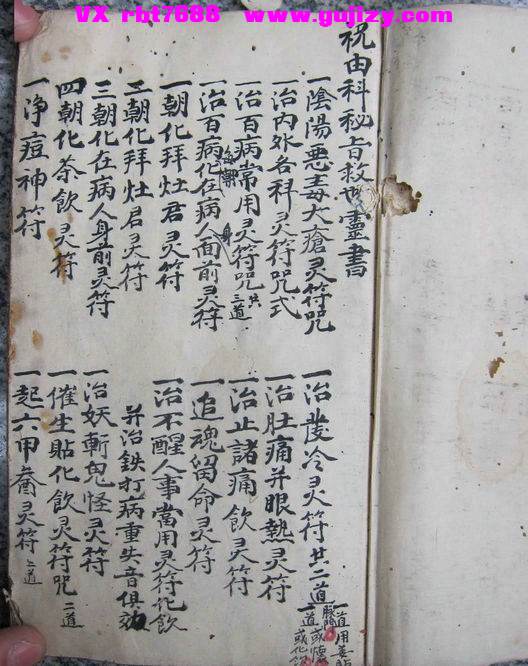 VX rbt7688 www.gujizy.com
祝由科秘旨救世灵書
一陰陽惡毒大瘡灵符咒
一治内外各科灵符咒式
一治百病常用灵符咒共三道
一治百病化在病人面前灵符
一朝化拜灶君灵符
二朝化拜灶君灵符
三朝化在病人身前灵符
四朝化茶飲灵符
一淨痘神符
一治發冷灵符共二道
一治肚痛并眼熱灵符
一治止諸痛飲灵符
一追魂留命灵符
一治不醒人事當用灵符化飲
并治鉄打病重失音俱效
一治妖斬鬼怪灵符
一催生貼化飲灵符咒二道
一起六甲灵符二道